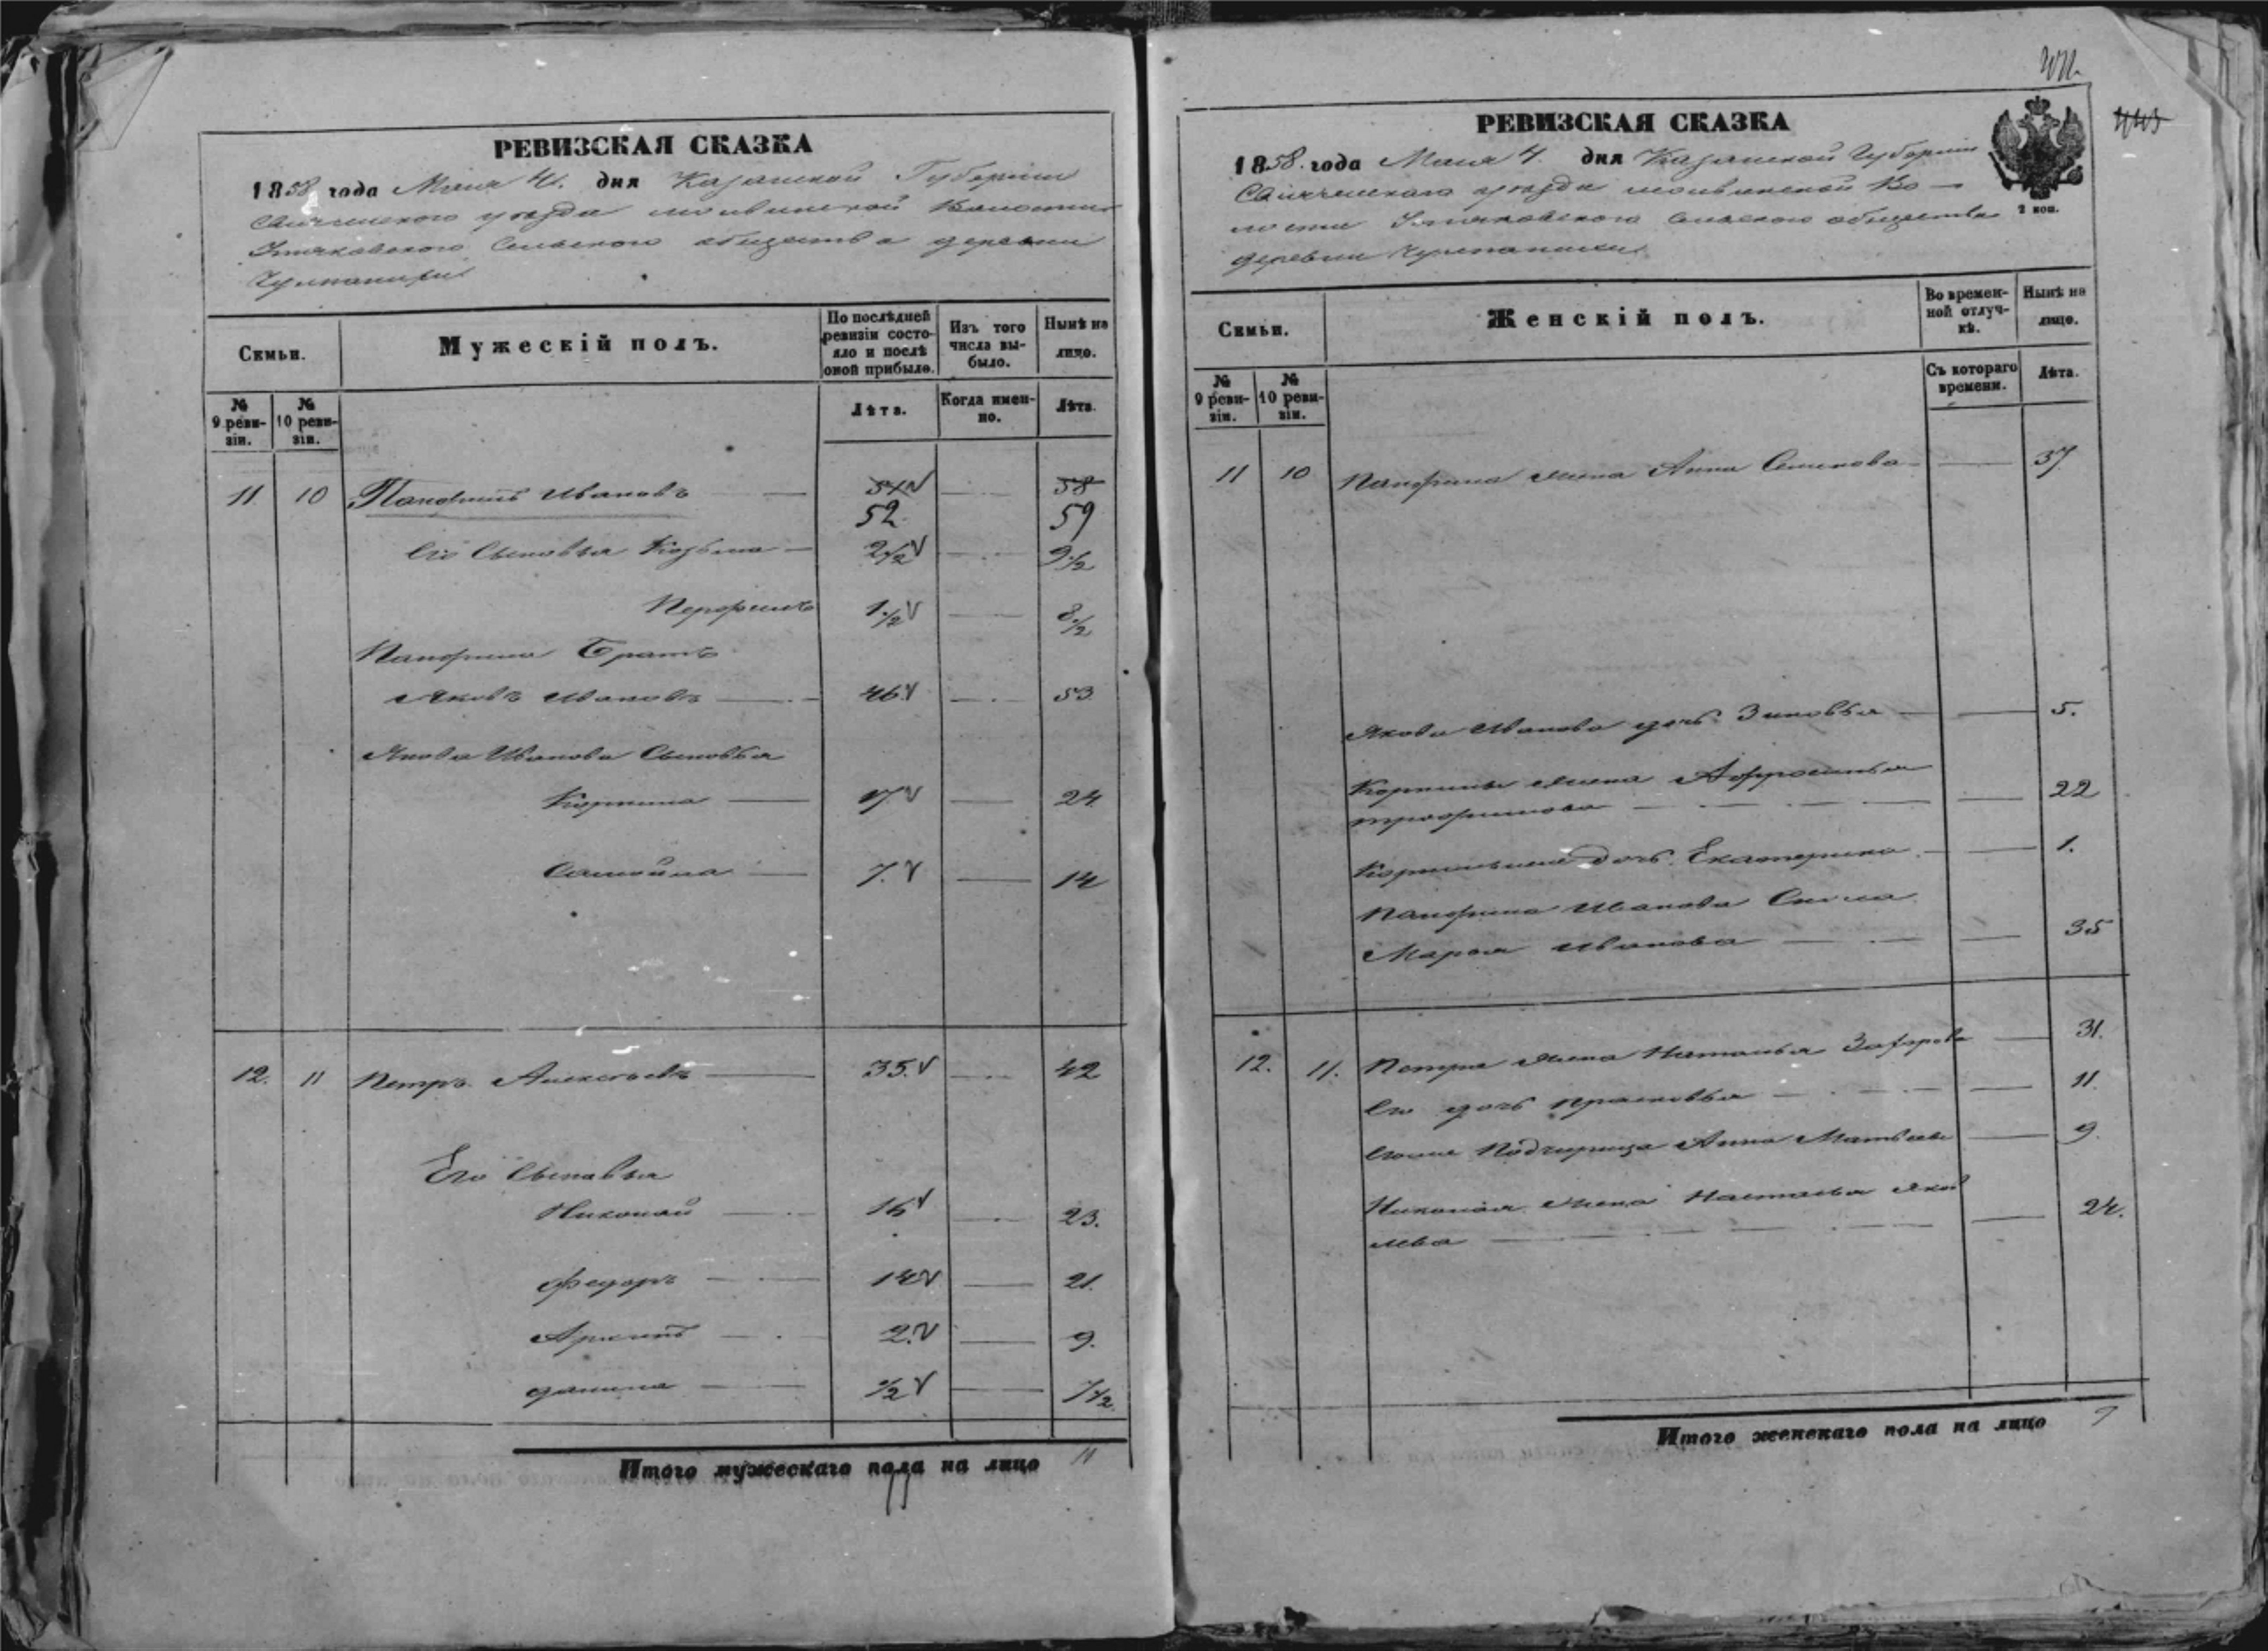 РЕВИЗСКАЯ СКАЗКА
1858 года Мая 4. дня Казанской Губерніи
уѣзда Волости
Сельского общества деревни
Семьи.
Мужескій полъ.
По послѣдней ревизіи состояло и послѣ оной прибыло.
Изъ того числа выбыло.
Нынѣ на лицо.
№ 9 ревизіи.
№ 10 ревизіи.
Лѣта.
Когда именно.
Лѣта.
11 10 Панфилъ Ивановъ 58
52 59
Его Сыновья Козьма 2 1/2 9 1/2
1 1/2 8 1/2
Панфила Братъ
Яковъ Ивановъ 46 53
Якова Иванова Сыновья
Корнила 17 24
Самойла 7. 14
12. 11 Петръ Алексѣевъ 35. 42
Его Сыновья
Николай 16 23.
Федоръ 14 21.
Архипъ 2. 9.
Данила 1/2 7 1/2
Итого мужескаго пола на лицо 11
РЕВИЗСКАЯ СКАЗКА
1858. года Мая 4. дня Казанской Губерніи
уѣзда Во-
лости сельского общества
деревни
2 коп.
Семьи.
Женскій полъ.
Во временной отлучкѣ.
Нынѣ на лицо.
№ 9 ревизіи.
№ 10 ревизіи.
Съ котораго времени.
Лѣта.
11 10 Панфила жена Анна Семенова 37
Якова Иванова дочь Зиновья 5.
Корнилы жена Афросинья
трофимова 22
дочь Екатерина 1.
Панфила Иванова Сноха
Марья Иванова 35
12. 11. Петра жена Наталья Захарова 31.
Его дочь Прасковья 11.
Падчерица Анна 9.
Николая жена Настасья Яков
лева 24.
Итого женскаго пола на лицо 9